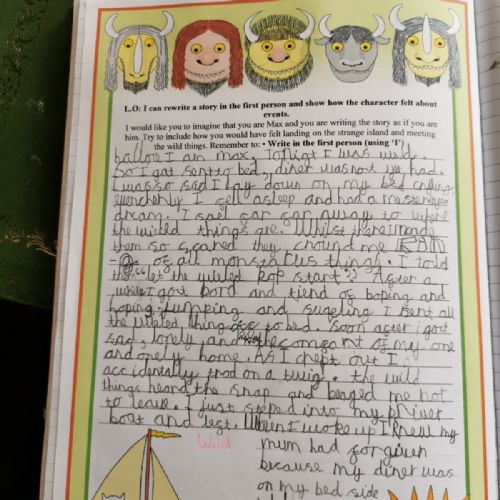 L.O: I can rewrite a story in the first person and show how the character felt about
events.
I would like you to imagine that you are Max and you are writing the story as if you are
him. Try to include how you would have felt landing on the strange island and meeting
the wild things. Remember to: • Write in the first person (using 'I')
hallow I am max. Tonigt I was wild.
So I got sent to bed, diner was not yet had.
I was so sad I lay down on my bed crying
I fell asleep and had a
dream. I sael far far away to where
the wield things are. Whilst there I made
them so scared they me
of all things. I told
them "let the wieled start" After a
while I gort bord and tierd of boping and
hoping jumping and I sent all
the wieled things to bed. Soon after I gort
sad, lonely and the of my one
and onely home. As I crept out I
accidentally trod on a twig. the wild
things heard the snap and beged me not
to leave. I just steped into my privet
boat and left. When I woke up I knew my
Wild
mum had forgiven
because my diner was
on my bed side